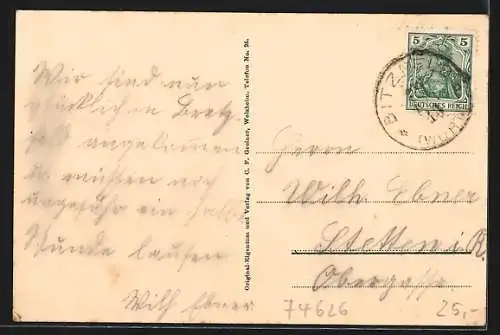 Wir sind nun
glücklich in Bretz
feld angekommen
u. müssen noch
ungefähr ein halbe
Stunde laufen
Wilh Ebner
Original-Eigentum und Verlag von C. F. Greiner, Welzheim. Telefon No. 26.
5 5
DEUTSCHES REICH
BITZ
(WÜRTT
Herrn
Wilh. Ebner
Stetten i. R.
Obergasse
74626
25,-